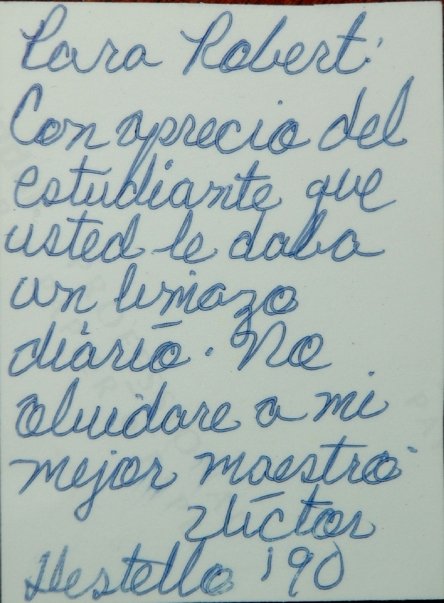 Para Robert:
Con aprecio del
estudiante que
usted le daba
un limazo
diário. No
olvidare a mi
mejor maestro.
Víctor
Destello '90